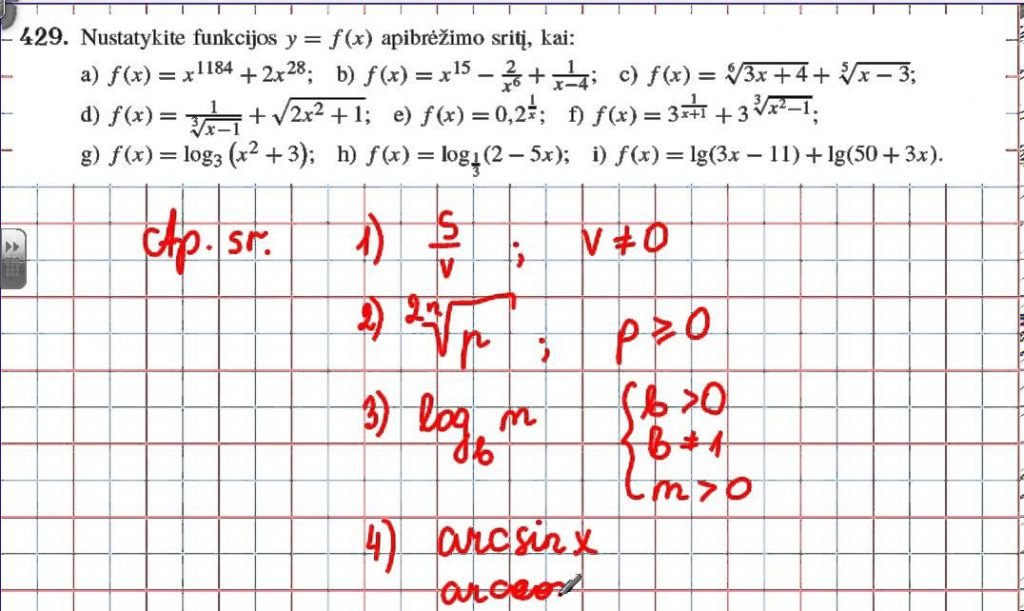 429. Nustatykite funkcijos y = f(x) apibrėžimo sritį, kai:
a) f(x) = x¹¹⁸⁴ + 2x²⁸; b) f(x) = x¹⁵ − 2/x⁶ + 1/(x−4); c) f(x) = ⁶√(3x + 4) + ⁵√(x − 3);
d) f(x) = 1/∛(x−1) + √(2x² + 1); e) f(x) = 0,2^(1/x); f) f(x) = 3^(1/(x+1)) + 3^(∛(x²−1));
g) f(x) = log₃ (x² + 3); h) f(x) = log_(1/3) (2 − 5x); i) f(x) = lg(3x − 11) + lg(50 + 3x).
Ap. sr. 1) s/v ; v ≠ 0
2) ²ⁿ√p ; p ⩾ 0
3) log_b m { b > 0
b ≠ 1
m > 0
4) arcsin x